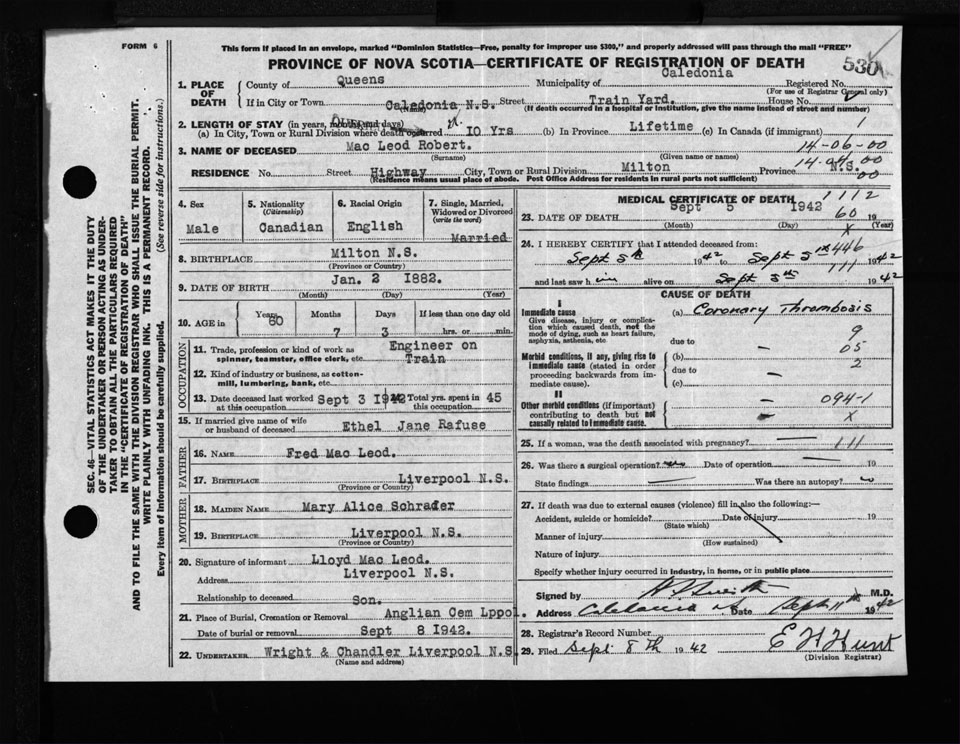 FORM 6
This form if placed in an envelope, marked "Dominion Statistics—Free, penalty for improper use $300," and properly addressed will pass through the mail "FREE"
PROVINCE OF NOVA SCOTIA—CERTIFICATE OF REGISTRATION OF DEATH
530
1. PLACE OF DEATH
County of Queens Municipality of Caledonia Registered No.
(For use of Registrar General only)
If in City or Town Caledonia N.S. Street Train Yard. House No.
(If death occurred in a hospital or institution, give the name instead of street and number)
2. LENGTH OF STAY (in years, months and days)
(a) In City, Town or Rural Division where death occurred 10 Yrs (b) In Province Lifetime (c) In Canada (if immigrant) 1
3. NAME OF DECEASED Mac Leod Robert. 14-06-00
(Surname) (Given name or names)
RESIDENCE No. Street Highway City, Town or Rural Division Milton Province N.S.
(Residence means usual place of abode. Post Office Address for residents in rural parts not sufficient)
4. Sex Male
5. Nationality (Citizenship) Canadian
6. Racial Origin English
7. Single, Married, Widowed or Divorced (write the word) Married
8. BIRTHPLACE Milton N.S.
(Province or Country)
9. DATE OF BIRTH Jan. 2 1882.
(Month) (Day) (Year)
10. AGE in Years 60 Months 7 Days 3 If less than one day old hrs. or min.
OCCUPATION
11. Trade, profession or kind of work as spinner, teamster, office clerk, etc. Engineer on Train
12. Kind of industry or business, as cotton-mill, lumbering, bank, etc.
13. Date deceased last worked at this occupation Sept 3 1942 14. Total yrs. spent in this occupation 45
15. If married give name of wife or husband of deceased Ethel Jane Rafuse
FATHER
16. NAME Fred Mac Leod.
17. BIRTHPLACE Liverpool N.S.
(Province or Country)
MOTHER
18. MAIDEN NAME Mary Alice Schrader
19. BIRTHPLACE Liverpool N.S.
(Province or Country)
20. Signature of informant Lloyd Mac Leod.
Address Liverpool N.S.
Relationship to deceased Son.
21. Place of Burial, Cremation or Removal Anglian Cem Lppol.
Date of burial or removal Sept 8 1942.
22. UNDERTAKER Wright & Chandler Liverpool N.S.
(Name and address)
MEDICAL CERTIFICATE OF DEATH 1112
23. DATE OF DEATH Sept 5 1942 60 19
(Month) (Day) (Year)
X
24. I HEREBY CERTIFY that I attended deceased from: 446
Sept 5th 1942 to Sept 5th 1942
111
and last saw him alive on Sept 5th 1942
CAUSE OF DEATH
I
Immediate cause
Give disease, injury or complication which caused death, not the mode of dying, such as heart failure, asphyxia, asthenia, etc
(a) Coronary Thrombosis
9
due to
05
Morbid conditions, if any, giving rise to immediate cause (stated in order proceeding backwards from immediate cause).
(b) — 2
due to
(c) —
II
Other morbid conditions (if important) contributing to death but not causally related to immediate cause.
— 094-1
— X
25. If a woman, was the death associated with pregnancy? — 111
26. Was there a surgical operation? Date of operation — 19
State findings — Was there an autopsy? no
27. If death was due to external causes (violence) fill in also the following:—
Accident, suicide or homicide? Date of injury 19
(State which)
Manner of injury
(How sustained)
Nature of injury
Specify whether injury occurred in industry, in home, or in public place
Signed by M.D.
Address Caledonia NS Date Sept 11th 1942
28. Registrar's Record Number
29. Filed Sept 8th 1942 E H Hunt
(Division Registrar)
SEC. 46—VITAL STATISTICS ACT MAKES IT THE DUTY
OF THE UNDERTAKER OR PERSON ACTING AS UNDER-
TAKER TO OBTAIN ALL THE PARTICULARS REQUIRED
IN THE "CERTIFICATE OF REGISTRATION OF DEATH"
AND TO FILE THE SAME WITH THE DIVISION REGISTRAR WHO SHALL ISSUE THE BURIAL PERMIT.
WRITE PLAINLY WITH UNFADING INK. THIS IS A PERMANENT RECORD.
Every item of Information should be carefully supplied. (See reverse side for instructions.)